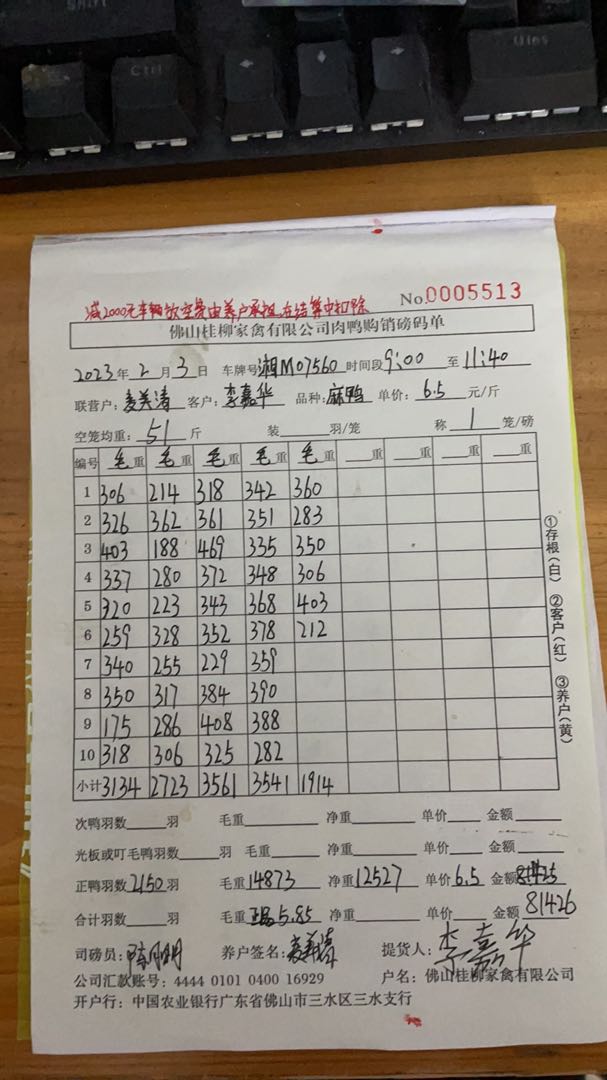 Shift
Ctrl
减2000元车辆放空费由养户承担,在结算中扣除
No.0005513
佛山桂柳家禽有限公司肉鸭购销磅码单
2023年2月3日 车牌号湘M07560 时间段9:00至11:40
联营户:麦美清 客户:李嘉华 品种:麻鸭 单价:6.5元/斤
空笼均重:51斤 装 羽/笼 称1笼/磅
编号 毛重 毛重 毛重 毛重 毛重 重 重 重
1 306 214 318 342 360
2 326 362 361 351 283
3 403 188 469 335 350
4 337 280 372 348 306
5 320 223 343 368 403
6 259 328 352 378 212
7 340 255 229 359
8 350 317 384 390
9 175 286 408 388
10 318 306 325 282
小计 3134 2723 3561 3541 1914
①存根(白) ②客户(红) ③养户(黄)
次鸭羽数 羽 毛重 净重 单价 金额
光板或叮毛鸭羽数 羽 毛重 净重 单价 金额
正鸭羽数2150羽 毛重14873 净重12527 单价6.5 金额
合计羽数 羽 毛重 5.85 净重 单价 金额81426
司磅员: 养户签名:麦美清 提货人:李嘉华
公司汇款账号:4444 0101 0400 16929 户名:佛山桂柳家禽有限公司
开户行:中国农业银行广东省佛山市三水区三水支行